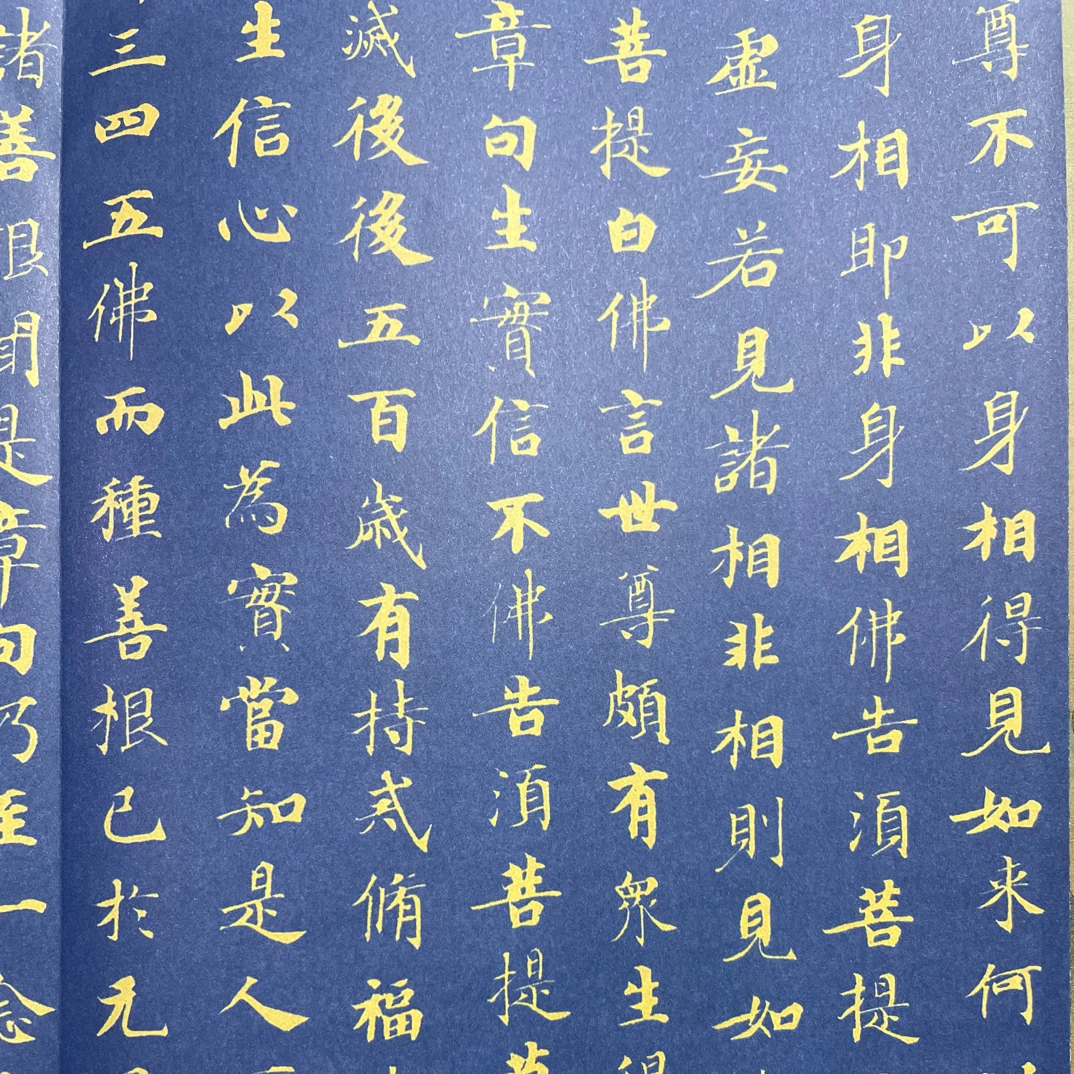 尊不可以身相得見如来何
身相即非身相佛告須菩提
虛妄若見諸相非相則見如
菩提白佛言世尊頗有衆生得
章句生實信不佛告須菩提
滅後後五百歳有持戒脩福
生信心以此為實當知是人
三四五佛而種善根已於元
諸善根聞是章句乃至一念